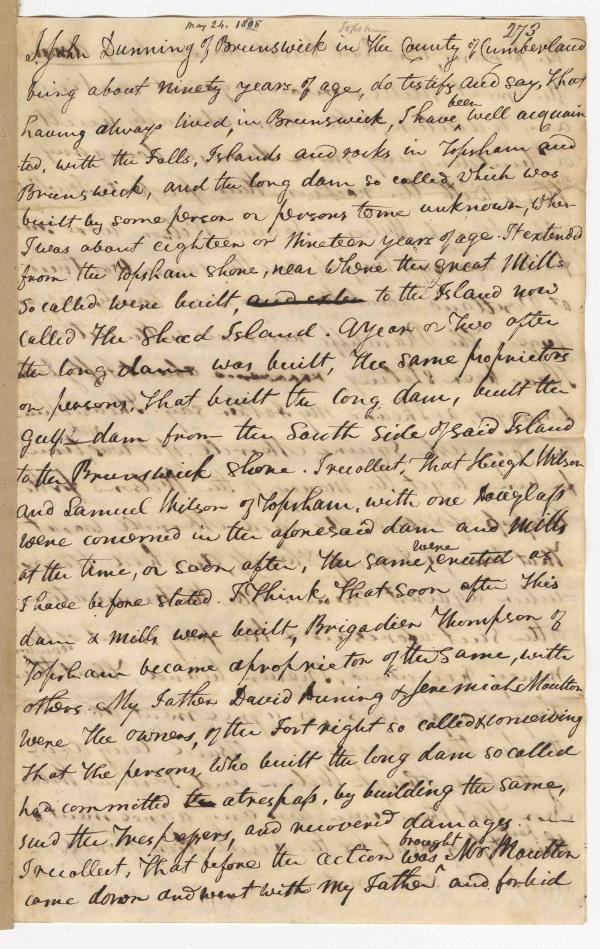 May 24. 1808 Topsham 273
I John Dunning of Brunswick in the County of Cumberland
being about ninety years of age, do testify and say, that
having always lived, in Brunswick, I have been well acquain
ted, with the Falls, Islands and rocks in Topsham and
Brunswick, and the long dam so called, which was
built by some person or persons to me unknown, when
I was about eighteen or Nineteen years of age. It extended
from the Topsham shore, near where the great Mills
so called were built, and exten to the Island now
called the Shad Island. A year or two after
the long dam was built, the same proprietors
or persons, that built the long dam, built the
gulf dam from the South side of said Island
to the Brunswick shore. I recollect, that Hugh Wilson
and Samuel Wilson of Topsham, with one Douglass
were concerned in the aforesaid dam and Mills
at the time, or soon after, the same were erected as
I have before stated. I think that soon after this
dam & mills were built, Brigadier Thompson of
Topsham became a proprietor of the same, with
others. My Father David Duning & Jeremiah Moulton
were the owners, of the Fort right so called & conceiving
that the persons, who built the long dam so called
had committed a trespass, by building the same,
sued the trespassers, and recovered damages.
I recollect, that before the action was brought Mr Moulton
came down and went with my Father and forbid